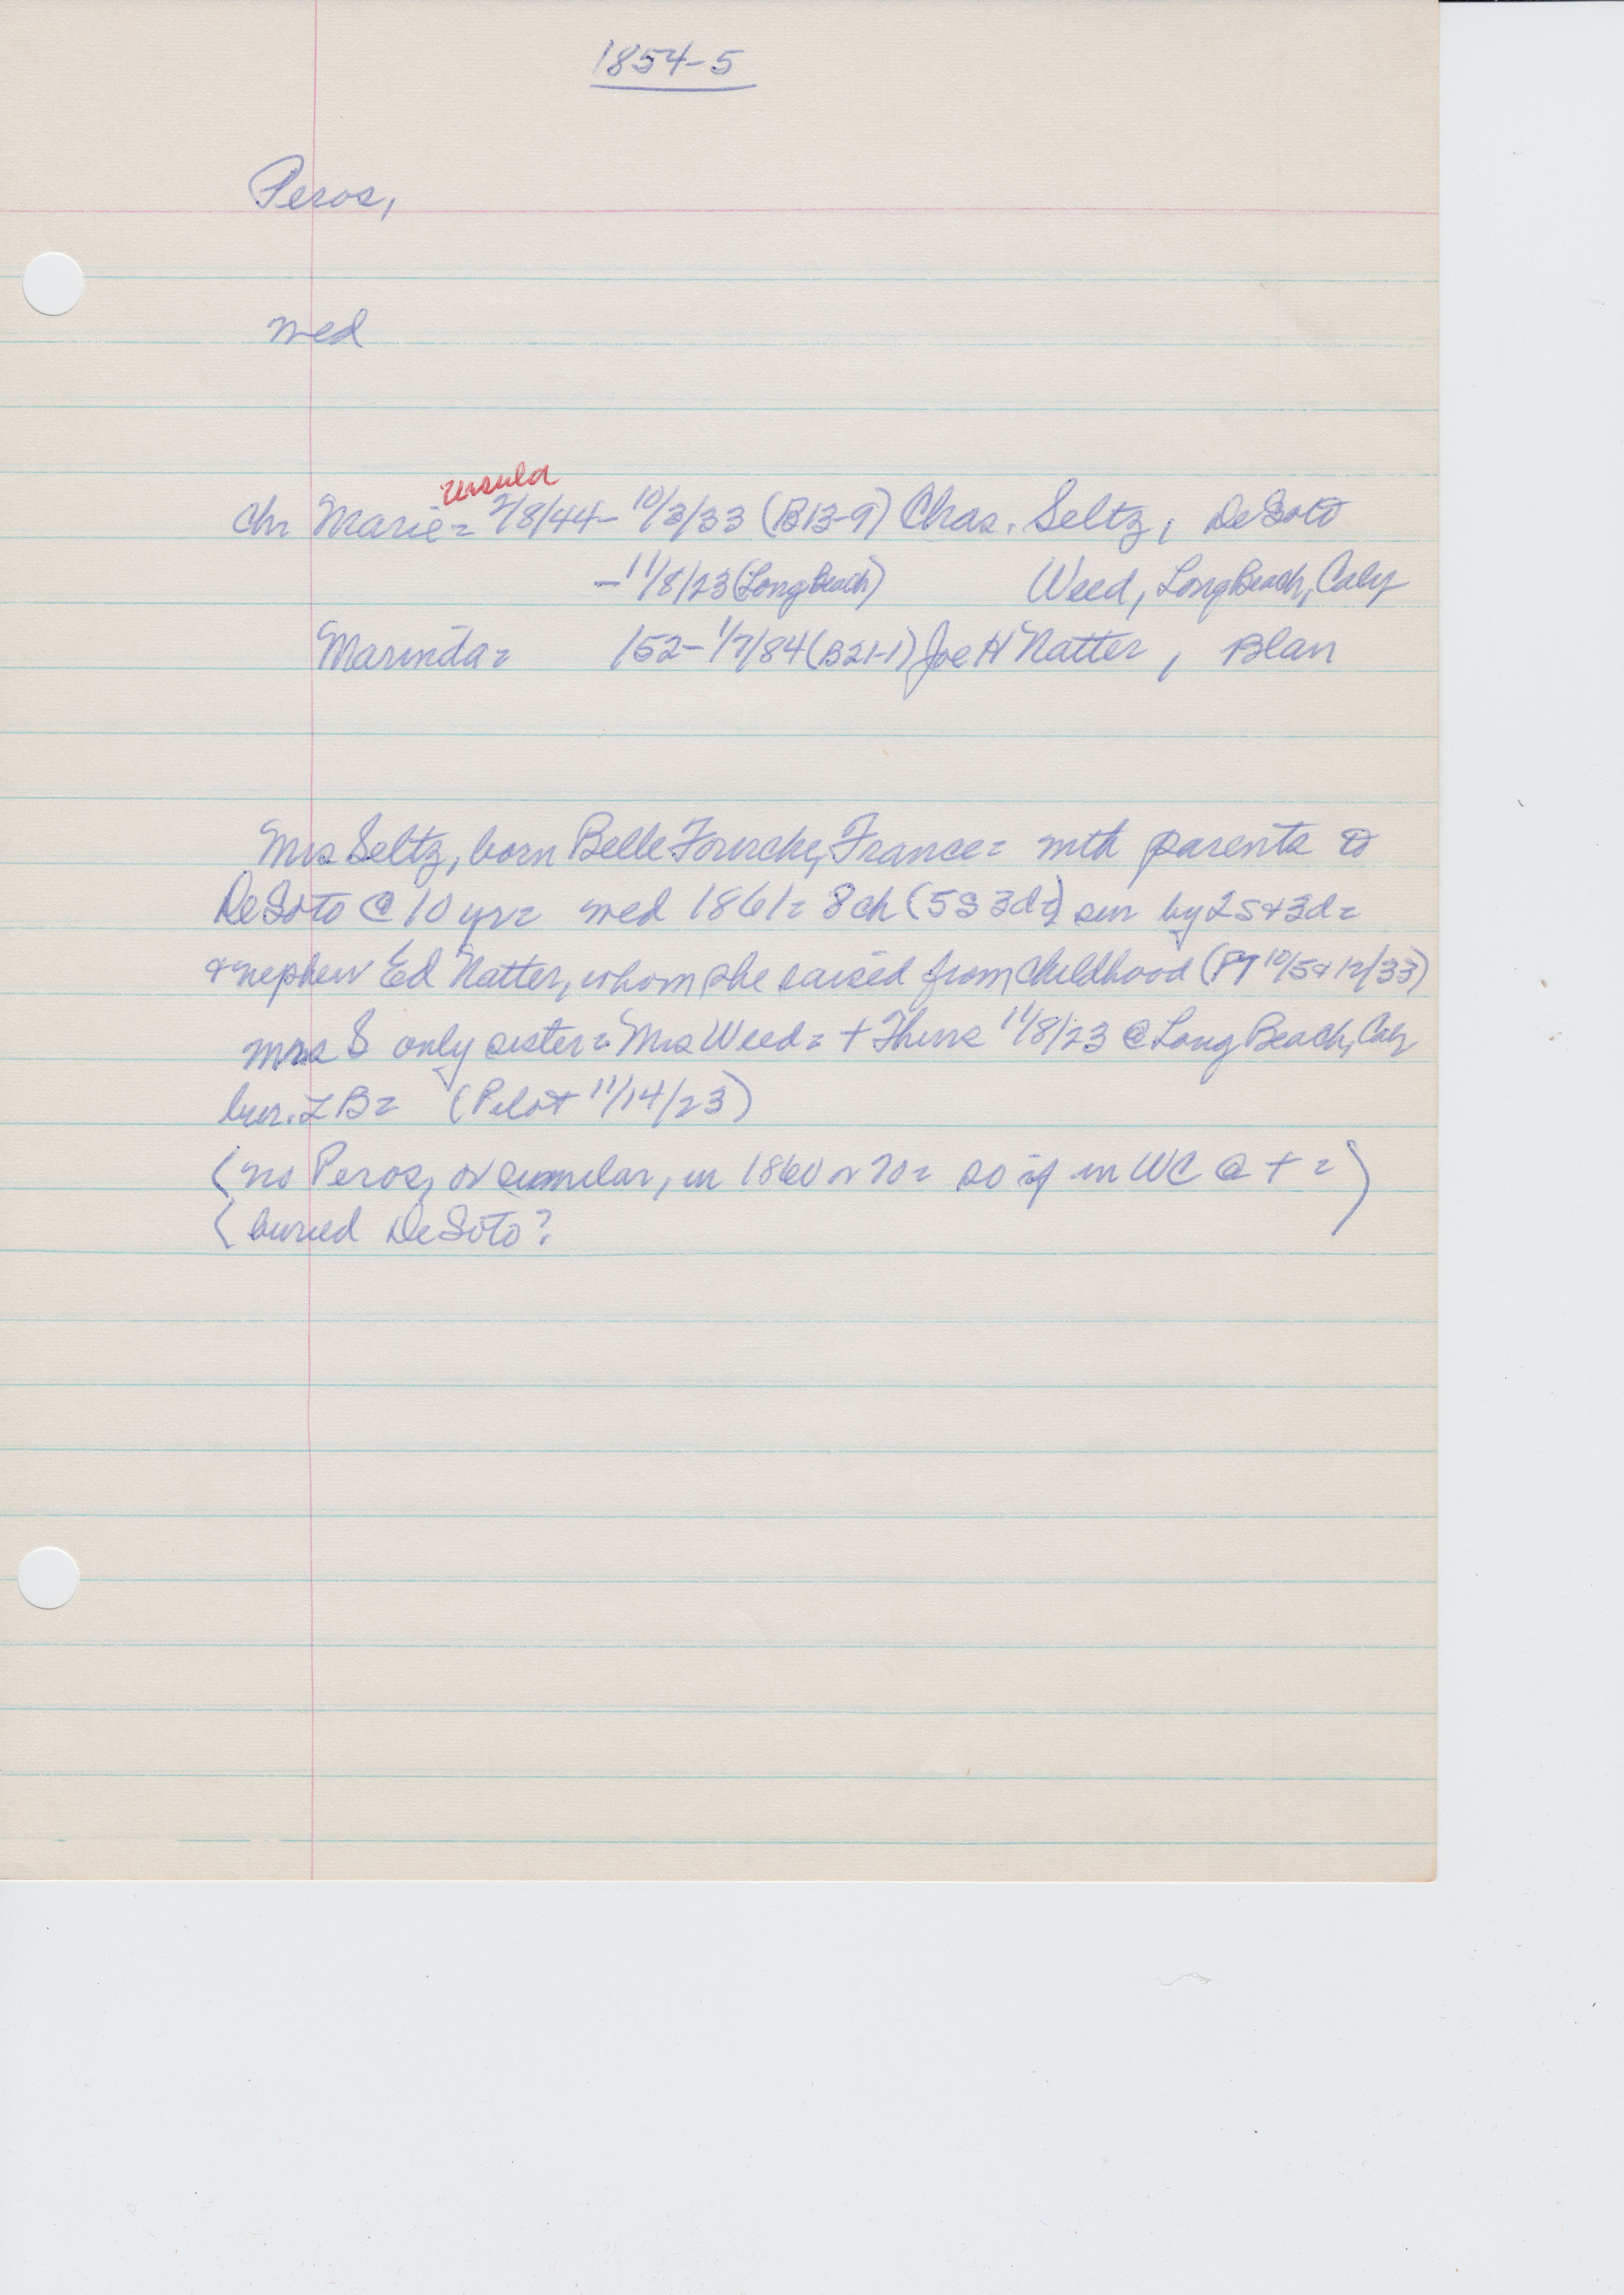 1854-5
Peros,
med
ursula
chr Marie = 2/8/44 - 10/3/33 (B13-9) Chas. Seltz, DeSoto
- 11/8/23 (Long Beach) Weed, Long Beach, Calif
Marinda = 152 - 1/7/84 (B21-1) Joe H Natter, Blair
Mrs Seltz, born Belle Fourche, France = with parents to
DeSoto @ 10 yr = med 1861 = 8 ch (5S 3d =) sur by 2S + 3d =
& nephew Ed Natter, whom she raised from childhood (PT 10/5 & 12/33)
Mrs S only sister = Mrs Weed = + Thurs 11/8/23 @ Long Beach, Calif
bur. LB = (Pilot 11/14/23)
(no Peros, or similar, in 1860 or 70 = so if in WC @ + =)
(buried DeSoto?